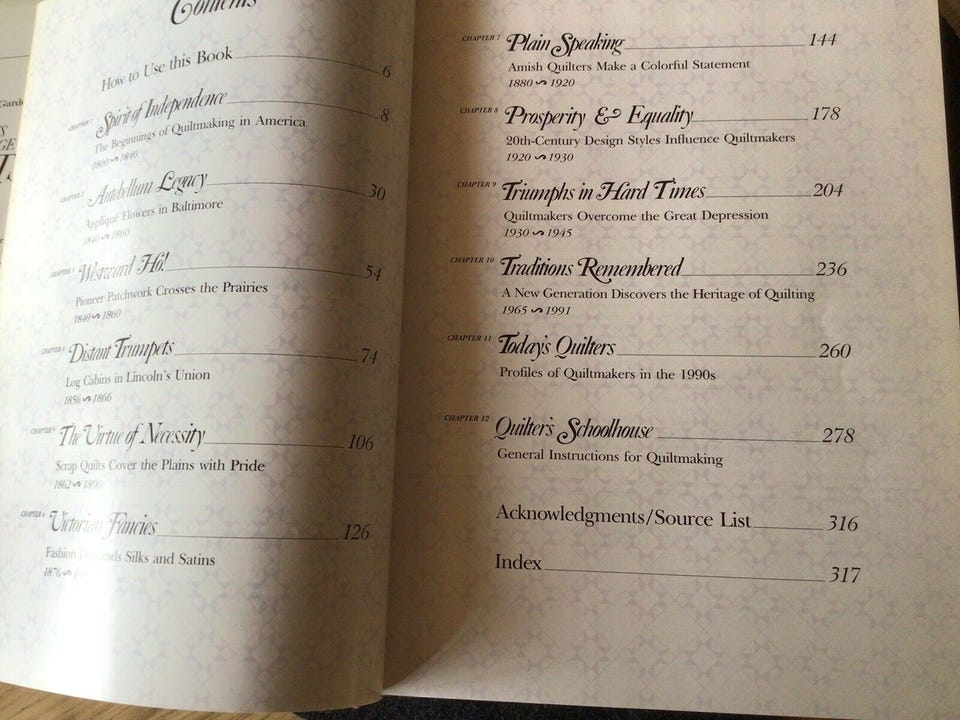 Contents
How to Use this Book 6
CHAPTER 1 Spirit of Independence 8
The Beginnings of Quiltmaking in America
1800 ~ 1840
CHAPTER 2 Antebellum Legacy 30
Appliqué Flowers in Baltimore
1840 ~ 1860
CHAPTER 3 Westward Ho! 54
Pioneer Patchwork Crosses the Prairies
1840 ~ 1860
CHAPTER 4 Distant Trumpets 74
Log Cabins in Lincoln's Union
1856 ~ 1866
CHAPTER 5 The Virtue of Necessity 106
Scrap Quilts Cover the Plains with Pride
1862 ~ 1890
CHAPTER 6 Victorian Fancies 126
Fashion Demands Silks and Satins
1876 ~
CHAPTER 7 Plain Speaking 144
Amish Quilters Make a Colorful Statement
1880 ~ 1920
CHAPTER 8 Prosperity & Equality 178
20th-Century Design Styles Influence Quiltmakers
1920 ~ 1930
CHAPTER 9 Triumphs in Hard Times 204
Quiltmakers Overcome the Great Depression
1930 ~ 1945
CHAPTER 10 Traditions Remembered 236
A New Generation Discovers the Heritage of Quilting
1965 ~ 1991
CHAPTER 11 Today's Quilters 260
Profiles of Quiltmakers in the 1990s
CHAPTER 12 Quilter's Schoolhouse 278
General Instructions for Quiltmaking
Acknowledgments/Source List 316
Index 317